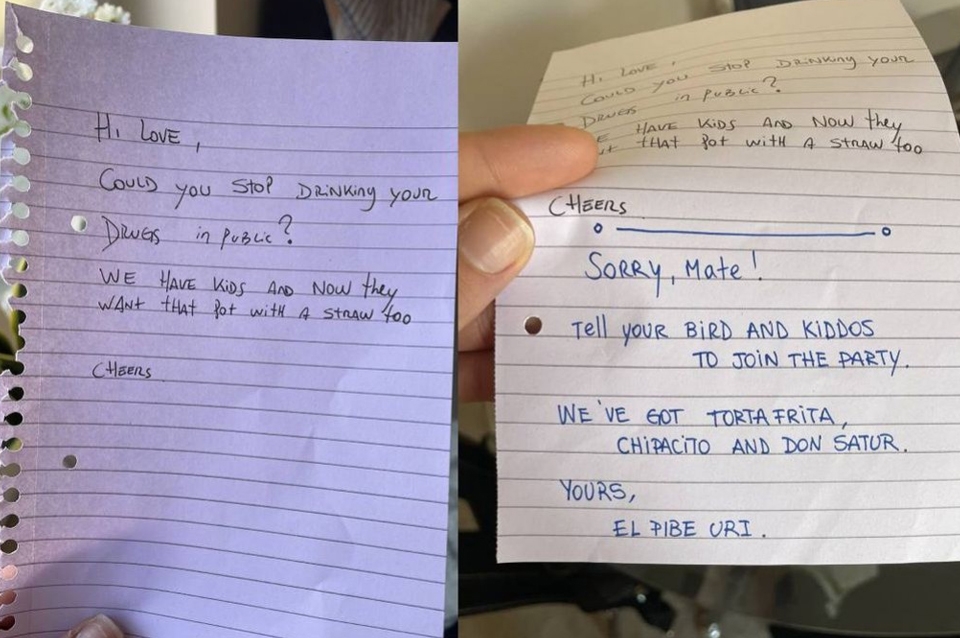 Hi LOVE,
COULD you STOP DRiNKiNg YOUR
DRUGS in PUBLiC?
WE HAVE KiDS AND NOW they
WANT tHAT Pot WitH A StRAW too
CHEERS
Hi LOVE,
COULD you STOP DRiNKiNg YOUR
DRUGS in PUBLiC?
E HAVE KiDS AND NOW they
tHAT Pot WitH A StRAW too
CHEERS
SORRY, MATE!
Tell YOUR BiRD AND KIDDOS
TO JOiN THE PARTY.
WE'VE GOT TORTA FRiTA,
CHiPACiTO AND DON SATUR.
YOURS,
EL PIBE URI.